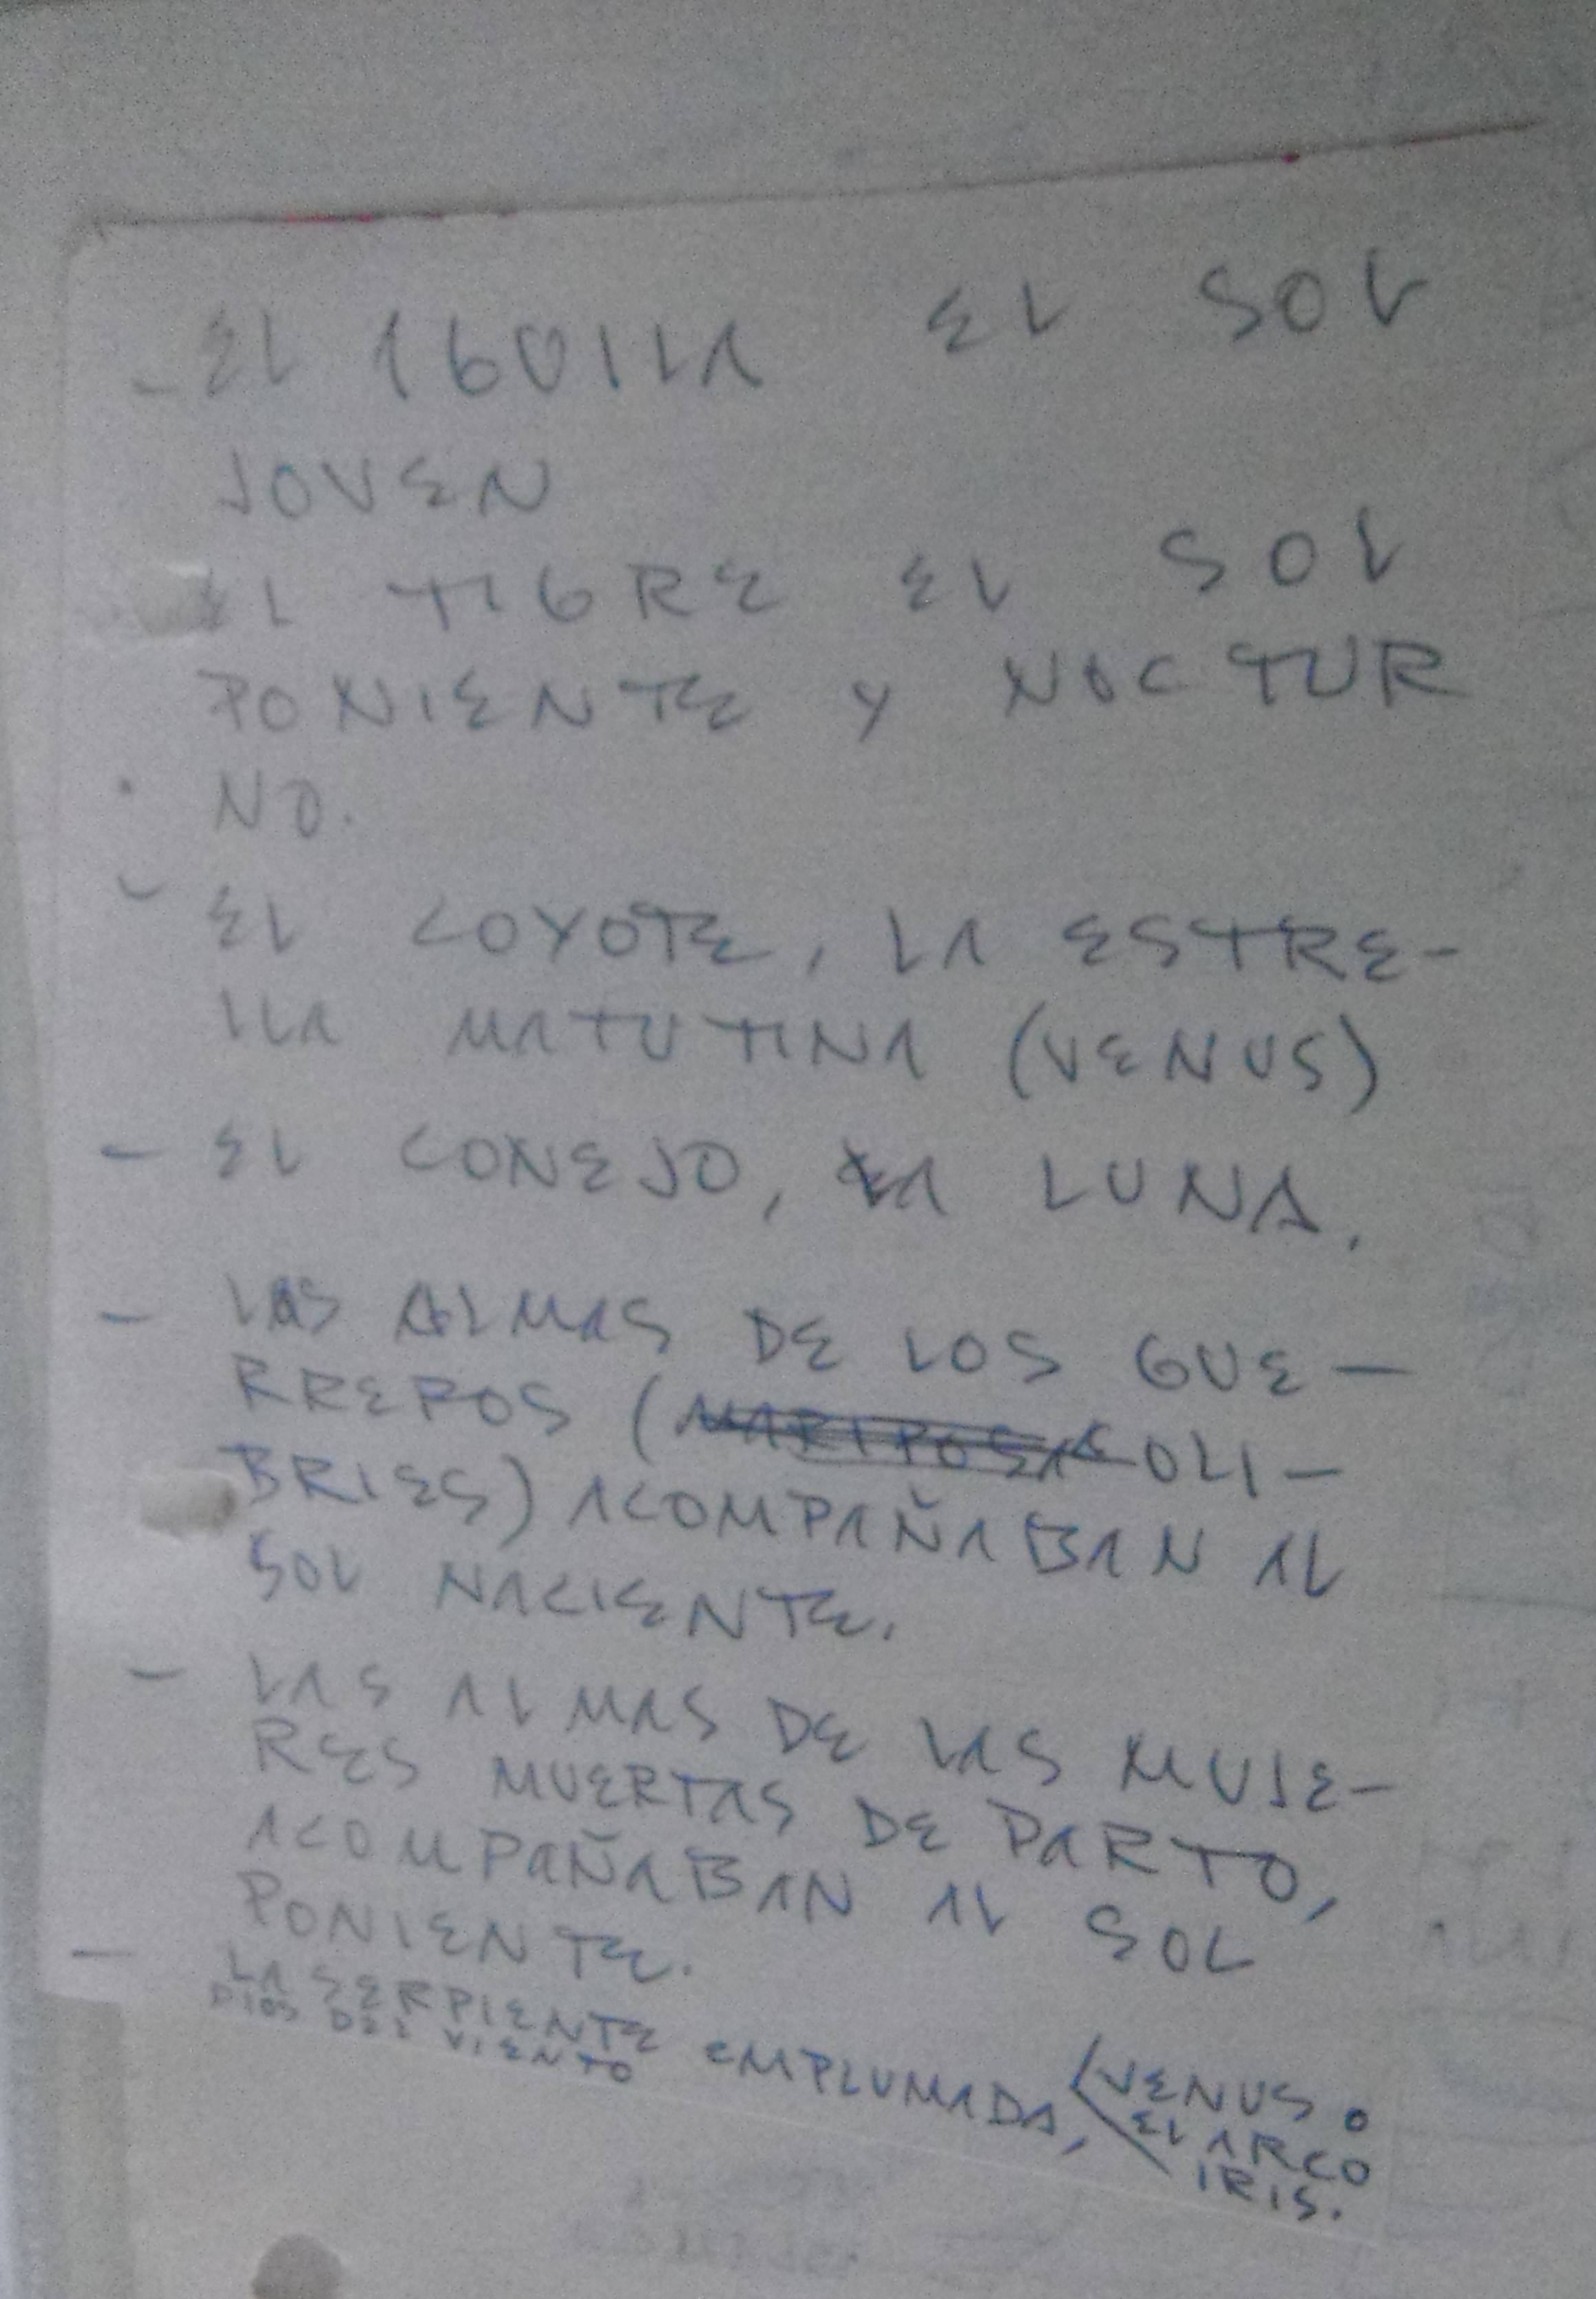 - EL AGUILA EL SOL
JOVEN
EL TIGRE EL SOL
PONIENTE Y NOCTUR
NO.
- EL COYOTE, LA ESTRE-
LLA MATUTINA (VENUS)
- EL CONEJO, LA LUNA.
- LAS ALMAS DE LOS GUE-
RREROS (MARIPOSAS COLI-
BRIES) ACOMPAÑABAN AL
SOL NACIENTE.
- LAS ALMAS DE LAS MUJE-
RES MUERTAS DE PARTO,
ACOMPAÑABAN AL SOL
PONIENTE.
- LA SERPIENTE EMPLUMADA,
DIOS DEL VIENTO
VENUS O
EL ARCO
IRIS.